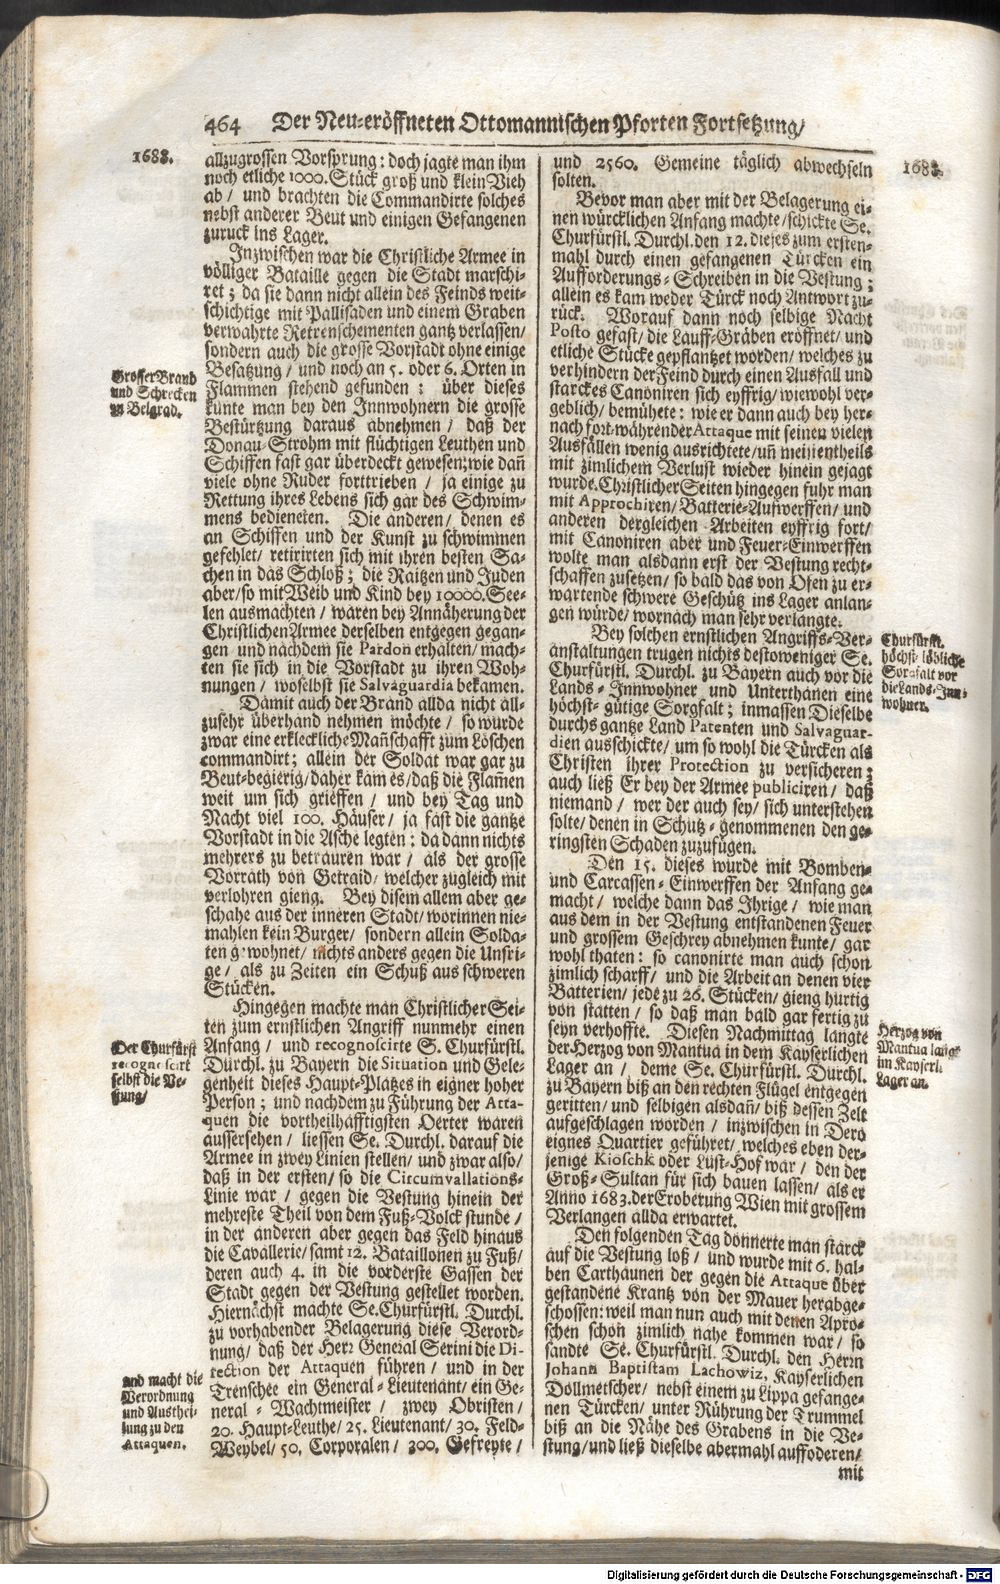 464 Der Neu-eröffneten Ottomannischen Pforten Fortsetzung/
1688.
allzugrossen Vorsprung: doch jagte man ihm
noch etliche 1000. Stück groß und klein Vieh
ab / und brachten die Commandirte solches
nebst anderer Beut und einigen Gefangenen
zuruck ins Lager.
Inzwischen war die Christliche Armee in
völliger Bataille gegen die Stadt marschi-
ret; da sie dann nicht allein des Feinds weit-
schichtige mit Pallisaden und einem Graben
verwahrte Retrenschementen gantz verlassen/
sondern auch die grosse Vorstadt ohne einige
Besatzung / und noch an 5. oder 6. Orten in
Flammen stehend gefunden: über dieses
kunte man bey den Innwohnern die grosse
Bestürtzung daraus abnehmen / daß der
Donau-Strohm mit flüchtigen Leuthen und
Schiffen fast gar überdeckt gewesen; wie dañ
viele ohne Ruder forttrieben / ja einige zu
Rettung ihres Lebens sich gar des Schwim-
mens bedieneten. Die anderen / denen es
an Schiffen und der Kunst zu schwimmen
gefehlet / retirirten sich mit ihren besten Sa-
chen in das Schloß; die Raitzen und Juden
aber / so mit Weib und Kind bey 10000. See-
len ausmachten / waren bey Annäherung der
Christlichen Armee derselben entgegen gegan-
gen und nachdem sie Pardon erhalten / mach-
ten sie sich in die Vorstadt zu ihren Woh-
nungen / woselbst sie Salvaguardia bekamen.
Damit auch der Brand allda nicht all-
zusehr überhand nehmen möchte / so wurde
zwar eine erkleckliche Mañschafft zum Löschen
commandirt; allein der Soldat war gar zu
Beut-begierig / daher kam es / daß die Flam̃en
weit um sich grieffen / und bey Tag und
Nacht viel 100. Häuser / ja fast die gantze
Vorstadt in die Asche legten: da dann nichts
mehrers zu betrauren war / als der grosse
Vorrath von Getraid / welcher zugleich mit
verlohren gieng. Bey disem allem aber ge-
schahe aus der inneren Stadt / worinnen nie-
mahlen kein Burger / sondern allein Solda-
ten gewohnet / nichts anders gegen die Unsri-
ge / als zu Zeiten ein Schuß aus schweren
Stücken.
Hingegen machte man Christlicher Sei-
ten zum ernstlichen Angriff nunmehr einen
Anfang / und recognoscirte S. Churfürstl.
Durchl. zu Bayern die Situation und Gele-
genheit dieses Haupt-Platzes in eigner hoher
Person; und nachdem zu Führung der Atta-
quen die vortheilhäfftigsten Oerter waren
aussersehen / liessen Se. Durchl. darauf die
Armee in zwey Linien stellen / und zwar also /
daß in der ersten / so die Circumvallations-
Linie war / gegen die Vestung hinein der
mehreste Theil von dem Fuß-Volck stunde /
in der anderen aber gegen das Feld hinaus
die Cavallerie / samt 12. Bataillonen zu Fuß /
deren auch 4. in die vorderste Gassen der
Stadt gegen der Vestung gestellet worden.
Hiernächst machte Se. Churfürstl. Durchl.
zu vorhabender Belagerung diese Verord-
nung / daß der Herr General Serini die Di-
rection der Attaquen führen / und in der
Trenschee ein General-Lieutenant / ein Ge-
neral-Wachtmeister / zwey Obristen /
20. Haupt-Leuthe / 25. Lieutenant / 30. Feld-
Weybel / 50. Corporalen / 300. Gefreyte /
Grosser Brand
und Schrecken
in Belgrad.
Der Churfürst
recognoscirt
selbst die Ve-
stung/
und macht die
Verordnung
und Austhei-
lung zu den
Attaquen.
1688.
und 2560. Gemeine täglich abwechseln
solten.
Bevor man aber mit der Belagerung ei-
nen würcklichen Anfang machte / schickte Se.
Churfürstl. Durchl. den 12. dieses zum ersten-
mahl durch einen gefangenen Türcken ein
Aufforderungs-Schreiben in die Vestung;
allein es kam weder Türck noch Antwort zu-
rück. Worauf dann noch selbige Nacht
Posto gefast / die Lauff-Gräben eröffnet / und
etliche Stücke gepflantzet worden / welches zu
verhindern der Feind durch einen Ausfall und
starckes Canoniren sich eyffrig / wiewohl ver-
geblich / bemühete: wie er dann auch bey her-
nach fort-währender Attaque mit seinen vielen
Ausfällen wenig ausrichtete / uñ meistentheils
mit zimlichem Verlust wieder hinein gejagt
wurde. Christlicher Seiten hingegen fuhr man
mit Approchiren / Batterie-Aufwerffen / und
anderen dergleichen Arbeiten eyffrig fort /
mit Canoniren aber und Feuer-Einwerffen
wolte man alsdann erst der Vestung recht-
schaffen zusetzen / so bald das von Ofen zu er-
wartende schwere Geschütz ins Lager anlan-
gen würde / wornach man sehr verlangte.
Bey solchen ernstlichen Angriffs-Ver-
anstaltungen trugen nichts destoweniger Se.
Churfürstl. Durchl. zu Bayern auch vor die
Lands-Innwohner und Unterthanen eine
höchst-gütige Sorgfalt; inmassen Dieselbe
durchs gantze Land Patenten und Salvaguar-
dien ausschickte / um so wohl die Türcken als
Christen ihrer Protection zu versicheren;
auch ließ Er bey der Armee publiciren / daß
niemand / wer der auch sey / sich unterstehen
solte / denen in Schutz-genommenen den ge-
ringsten Schaden zuzufügen.
Den 15. dieses wurde mit Bomben-
und Carcassen-Einwerffen der Anfang ge-
macht / welche dann das Ihrige / wie man
aus dem in der Vestung entstandenen Feuer
und grossem Geschrey abnehmen kunte / gar
wohl thaten: so canonirte man auch schon
zimlich scharff / und die Arbeit an denen vier
Batterien / jede zu 26. Stücken / gieng hurtig
von statten / so daß man bald gar fertig zu
seyn verhoffte. Diesen Nachmittag langte
der Herzog von Mantua in dem Kayserlichen
Lager an / deme Se. Churfürstl. Durchl.
zu Bayern biß an den rechten Flügel entgegen
geritten / und selbigen alsdañ / biß dessen Zelt
aufgeschlagen worden / inzwischen in Dero
eignes Quartier geführet / welches eben der-
jenige Kioschk oder Lust-Hof war / den der
Groß-Sultan für sich bauen lassen / als er
Anno 1683. der Eroberung Wien mit grossem
Verlangen allda erwartet.
Den folgenden Tag donnerte man starck
auf die Vestung loß / und wurde mit 6. hal-
ben Carthaunen der gegen die Attaque über
gestandene Krantz von der Mauer herabge-
schossen: weil man nun auch mit denen Apro-
schen schon zimlich nahe kommen war / so
sandte Se. Churfürstl. Durchl. den Herrn
Johann Baptistam Lachowiz, Kayserlichen
Dollmetscher / nebst einem zu Lippa gefange-
nen Türcken / unter Rührung der Trummel
biß an die Nähe des Grabens in die Ve-
stung / und ließ dieselbe abermahl auffoderen /
mit
Churfürstl.
höchst-löbliche
Sorgfalt vor
die Lands-Inn-
wohner.
Herzog von
Mantua langt
im Kayserl.
Lager an.
Digitalisierung gefördert durch die Deutsche Forschungsgemeinschaft - DFG